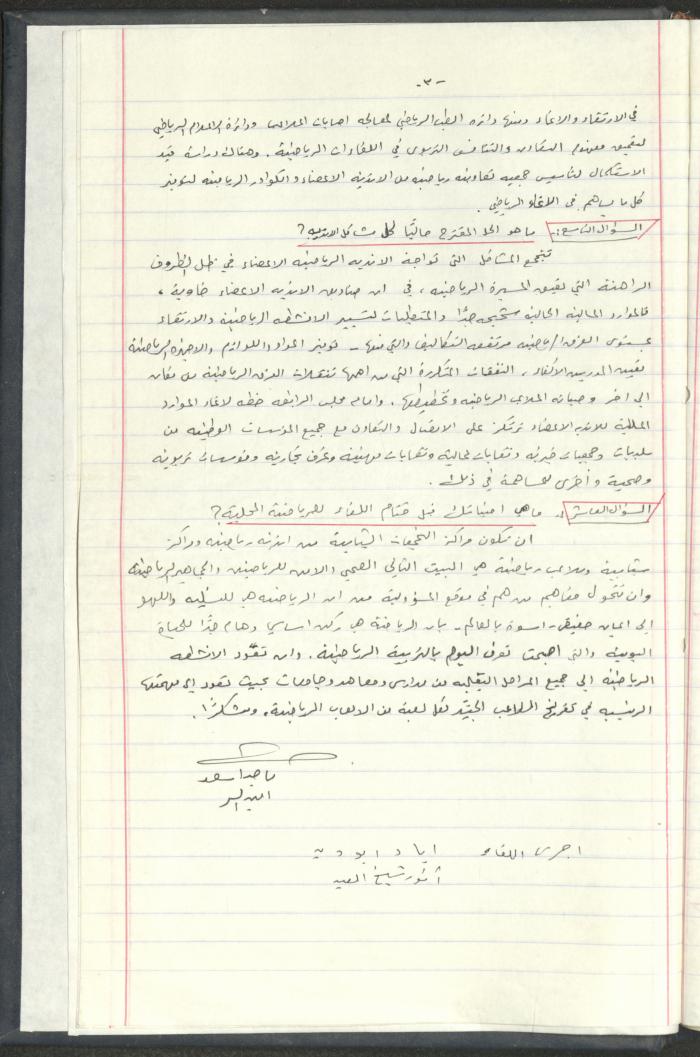 -٣-
في الارتقاء والانماء ومنها دائرة الطب الرياضي لمعالجة اصابات الملاعب ودائرة الاعلام الرياضي
لتحقيق مفهوم التعاون والتنافس التربوي في اللقاءات الرياضية . وهناك دراسة قيد
الاستكمال لتأسيس جمعية تعاونية رياضية من الاندية الاعضاء والكوادر الرياضية لتوفير
كل ما يساهم في الانماء الرياضي .
السؤال التاسع : ما هو الحل المقترح حاليًا لكل مشاكل الاندية ؟
تتجمع المشاكل التي تواجه الاندية الرياضية الاعضاء في ظل الظروف
الراهنة التي تعيق المسيرة الرياضية ، في ان صناديق الاندية الاعضاء خاوية ،
فالموارد المالية الحالية شحيحة جدًا والمتطلبات لتسيير الانشطة الرياضية والارتقاء
بمستوى الفرق الرياضية مرتفعة التكاليف والتي منها - توفير المواد واللوازم والاجهزة الرياضية
تعيين المدربين الأكفاء ، النفقات المتكررة التي من اهمها تنقلات الفرق الرياضية من مكان
الى آخر وصيانة الملاعب الرياضية وتخطيطها . وامام مجلس الرابطة خطة لانماء الموارد
المالية للاندية الاعضاء ترتكز على الاتصال والتعاون مع جميع المؤسسات الوطنية من
بلديات وجمعيات خيرية ونقابات عمالية ونقابات مهنية وغرف تجارية ومؤسسات تربوية
وصحية وأخرى للمساهمة في ذلك .
السؤال العاشر : ما هي امنياتك قبل ختام اللقاء للرياضة المحلية ؟
ان تكون مراكز التجمعات الشبابية من اندية رياضية ومراكز
شبابية وملاعب رياضية هي البيت الثاني الصحي والآمن للرياضيين والجماهير الرياضية
وان تتحول مفاهيم من هم في موقع المسؤولية من ان الرياضة هي للتسلية واللهو
الى ايمان حقيقي - اسوة بالعالم - بان الرياضة هي ركن اساسي وهام جدًا للحياة
اليومية والتي اصبحت تعرف اليوم بالتربية الرياضية . وان تعود الانشطة
الرياضية الى جميع المراحل التعليمية من مدارس ومعاهد وجامعات بحيث تعود الى مهمتها
الرئيسية في تفريخ اللاعب الجيّد لكل لعبة من الالعاب الرياضية . وشكرًا .
ماجد اسعد
امين السر
اجرى اللقاء اياد ابو دية
أنور شيخ العيد